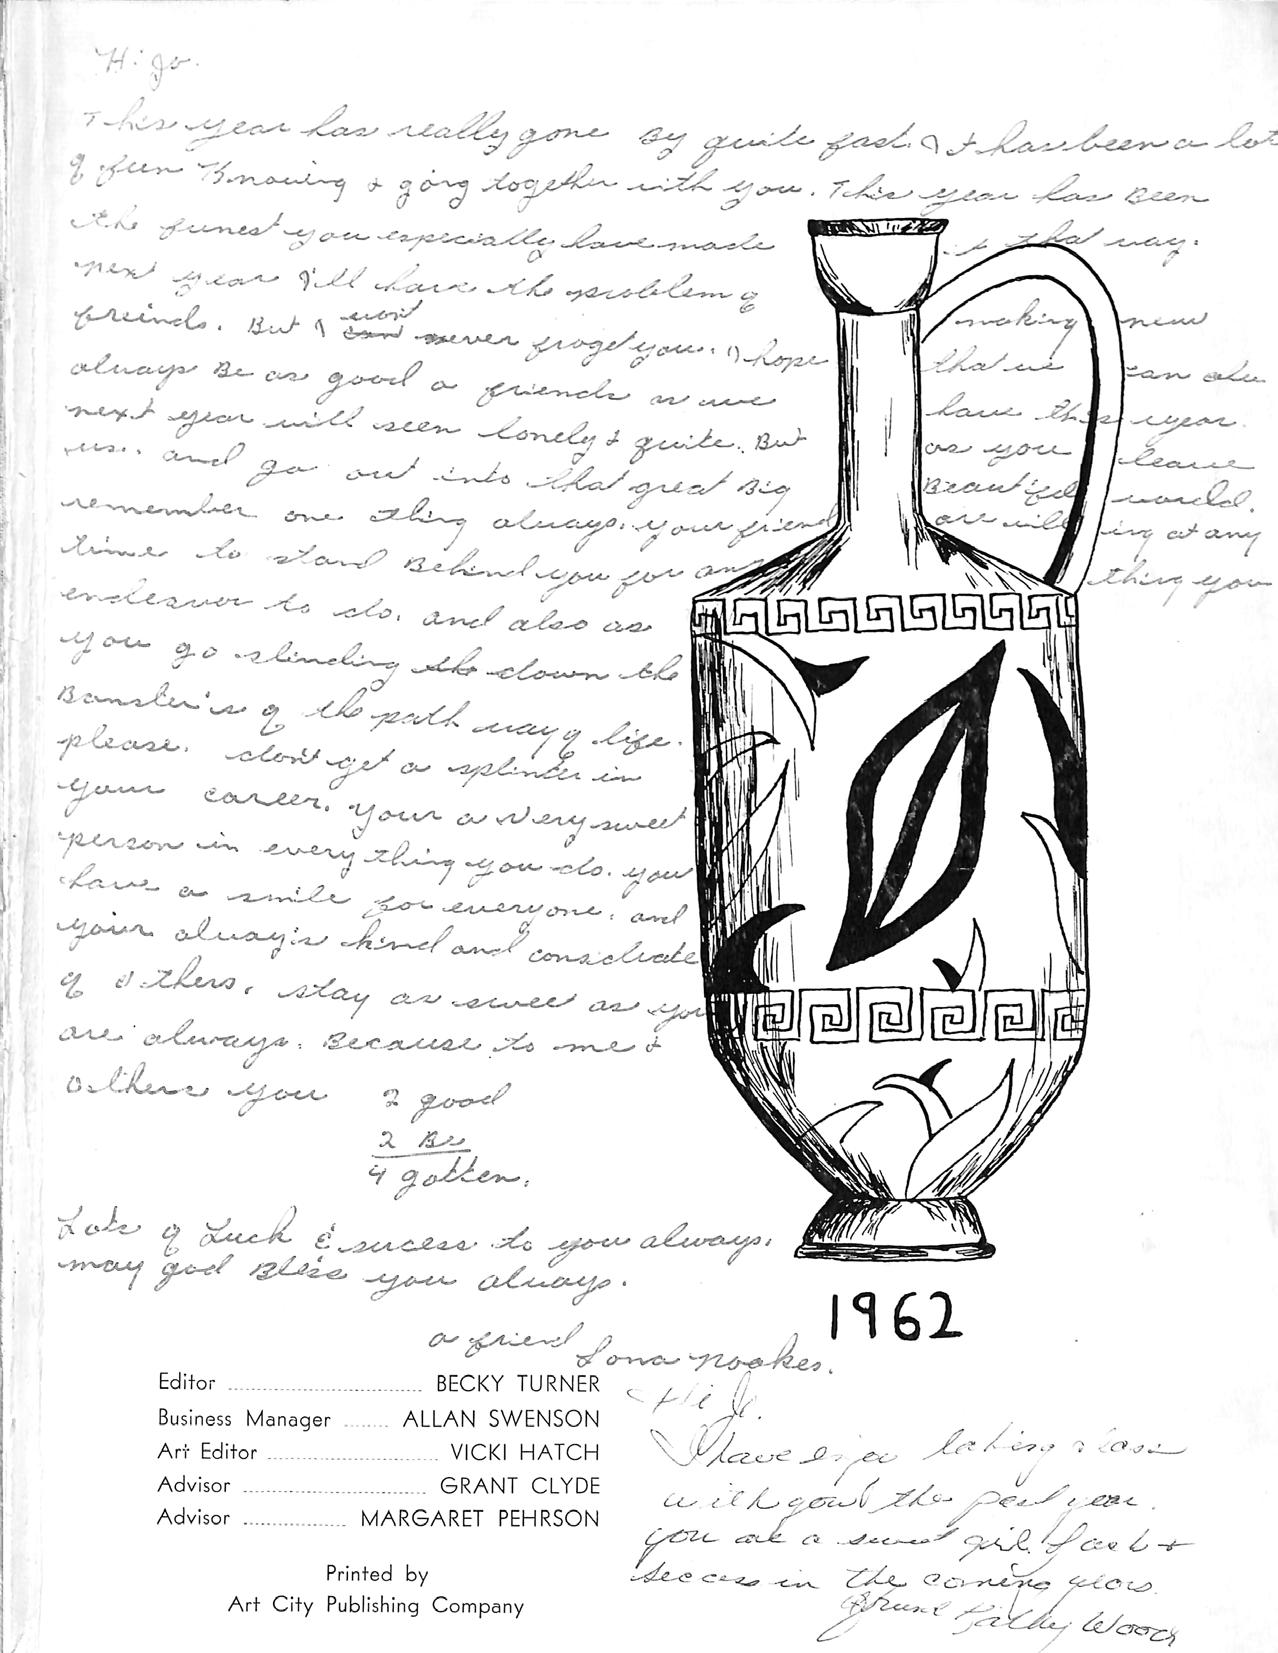 Hi Jo.
This year has really gone By quite fast. & I has been a lot
of fun Knowing & going together with you. This year has Been
the funest you especially have made it that way.
next year I'll have the problem of making new
freinds. But I won't never froget you. I hope that we can
always Be as good a friends as we have this year.
next year will seen lonely & quite. But as you leave
us. and go out into that great Big Beautiful world.
remember one thing always. your friend are willing at any
time to stand Behind you for any thing you
endeavor to do. and also as
you go slinding the down the
Banster's of the path way of life.
please. don't get a splinter in
your career. your a very sweet
person in everything you do. you
have a smile for everyone. and
your always kind and considrate
of others. stay as sweet as you
are always. Because to me &
others you 2 good
2 Be
4 gotten.
Lots of Luck & sucess to you always.
may god Bless you always.
a friend Lona Noakes.
1962
Editor BECKY TURNER
Business Manager ALLAN SWENSON
Art Editor VICKI HATCH
Advisor GRANT CLYDE
Advisor MARGARET PEHRSON
Printed by
Art City Publishing Company
Hi Jo.
I have enjoy taking class
with you the past year.
you are a sweet girl. Luck &
seccess in the coming years.
Kathy Wood